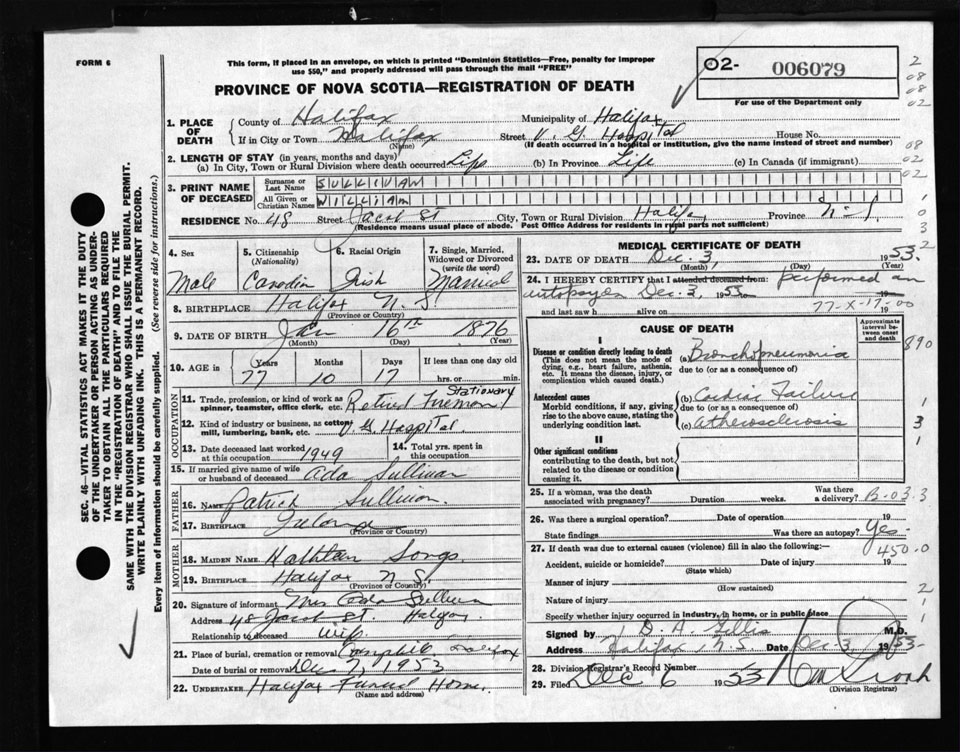 FORM 6
This form, if placed in an envelope, on which is printed "Dominion Statistics—Free, penalty for improper
use $50," and properly addressed will pass through the mail "FREE"
PROVINCE OF NOVA SCOTIA—REGISTRATION OF DEATH
02- 006079
For use of the Department only
2
08
08
02
1. PLACE OF DEATH
County of Halifax
Municipality of Halifax
If in City or Town Halifax Street V. G. Hospital House No.
(Name) (If death occurred in a hospital or institution, give the name instead of street and number)
08
2. LENGTH OF STAY (in years, months and days)
(a) In City, Town or Rural Division where death occurred Life (b) In Province Life (c) In Canada (if immigrant)
02
02
3. PRINT NAME OF DECEASED
Surname or Last Name SULLIVAN
All Given or Christian Names WILLIAM
RESIDENCE No. 48 Street Jacob St City, Town or Rural Division Halifax Province N-S.
(Residence means usual place of abode. Post Office Address for residents in rural parts not sufficient)
1
0
3
2
4. Sex
Male
5. Citizenship (Nationality)
Canadian
6. Racial Origin
Irish
7. Single, Married, Widowed or Divorced (write the word)
Married
8. BIRTHPLACE Halifax N. S
(Province or Country)
9. DATE OF BIRTH Jan 16th 1876
(Month) (Day) (Year)
10. AGE in
Years Months Days If less than one day old
77 10 17 hrs. or min.
OCCUPATION
11. Trade, profession, or kind of work as
spinner, teamster, office clerk, etc. Retired Fireman Stationary
12. Kind of industry or business, as cotton
mill, lumbering, bank, etc. V. G Hospital.
13. Date deceased last worked
at this occupation 1949
14. Total yrs. spent in
this occupation
15. If married give name of wife
or husband of deceased Ada Sullivan
FATHER
16. NAME Patrick Sullivan.
17. BIRTHPLACE Ireland
(Province or Country)
MOTHER
18. MAIDEN NAME
19. BIRTHPLACE Halifax N S.
(Province or Country)
20. Signature of informant Mrs Ada Sullivan
Address 48 Jacob St. Halifax
Relationship to deceased wife
21. Place of burial, cremation or removal Halifax
Date of burial or removal Dec 7, 1953
22. UNDERTAKER Halifax Funeral Home.
(Name and address)
MEDICAL CERTIFICATE OF DEATH
23. DATE OF DEATH Dec. 3 1953.
(Month) (Day) (Year)
24. I HEREBY CERTIFY that I attended deceased from: performed an
autopsy on Dec. 3, 1953 19
and last saw h alive on 77-X-17-00 19
CAUSE OF DEATH
Approximate interval between onset and death
I
Disease or condition directly leading to death
(This does not mean the mode of
dying, e.g., heart failure, asthenia,
etc. It means the disease, injury, or
complication which caused death.)
(a) Bronchopneumonia
due to (or as a consequence of)
890
Antecedent causes
Morbid conditions, if any, giving
rise to the above cause, stating the
underlying condition last.
(b) Cardiac Failure
due to (or as a consequence of)
(c) Atherosclerosis
1
3
1
II
Other significant conditions
contributing to the death, but not
related to the disease or condition
causing it.
25. If a woman, was the death
associated with pregnancy? Duration weeks.
Was there
a delivery? B-03.3
26. Was there a surgical operation? Date of operation 19
State findings Was there an autopsy? Yes-
27. If death was due to external causes (violence) fill in also the following:— 450-0
Accident, suicide or homicide? Date of injury 19
(State which)
Manner of injury
(How sustained)
Nature of injury
2
1
Specify whether injury occurred in industry, in home, or in public place
Signed by D. A. Gillis M.D.
Address Halifax, N.S. Date Dec 3, 1953-
28. Division Registrar's Record Number
29. Filed Dec 6 1953
(Division Registrar)
SEC. 46—VITAL STATISTICS ACT MAKES IT THE DUTY
OF THE UNDERTAKER OR PERSON ACTING AS UNDER-
TAKER TO OBTAIN ALL THE PARTICULARS REQUIRED
IN THE "REGISTRATION OF DEATH" AND TO FILE THE
SAME WITH THE DIVISION REGISTRAR WHO SHALL ISSUE THE BURIAL PERMIT.
WRITE PLAINLY WITH UNFADING INK. THIS IS A PERMANENT RECORD.
Every item of information should be carefully supplied. (See reverse side for instructions.)